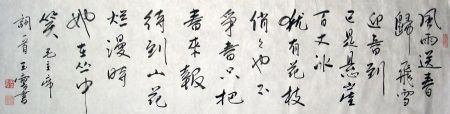 風雨送春
歸飛雪
迎春到
已是懸崖
百丈冰
犹有花枝
俏々也不
爭春只把
春來報
待到山花
烂漫時
她在丛中
笑 毛主席
詞一首玉雲書